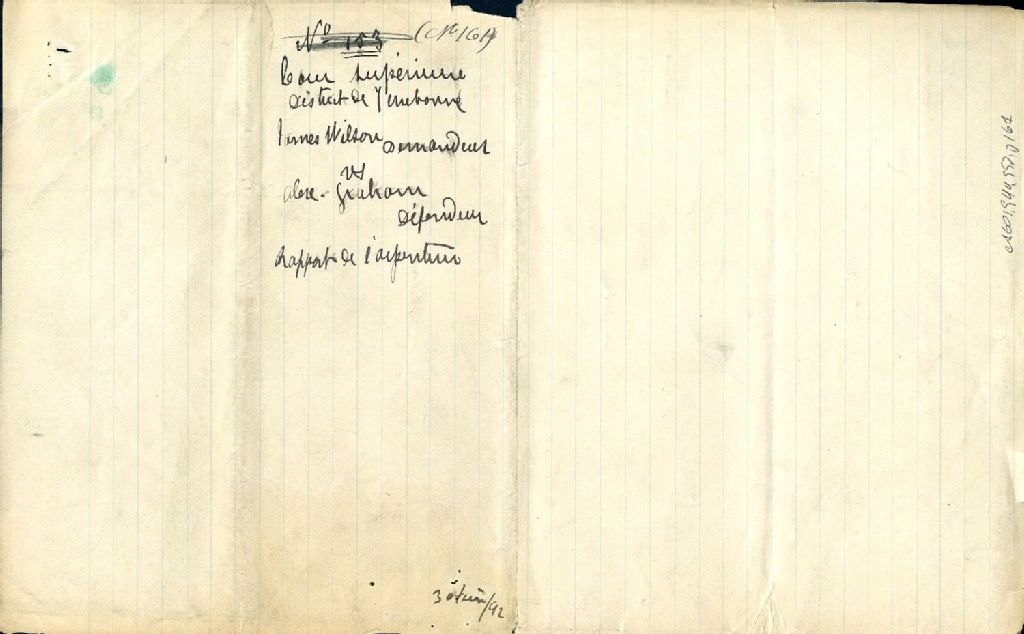 No 153 (No 161)
Cour Supérieure
District de Terrebonne
James Wilson Demandeur
vs
Alex. Graham
Défendeur
Rapport de l'arpenteur
3 /92